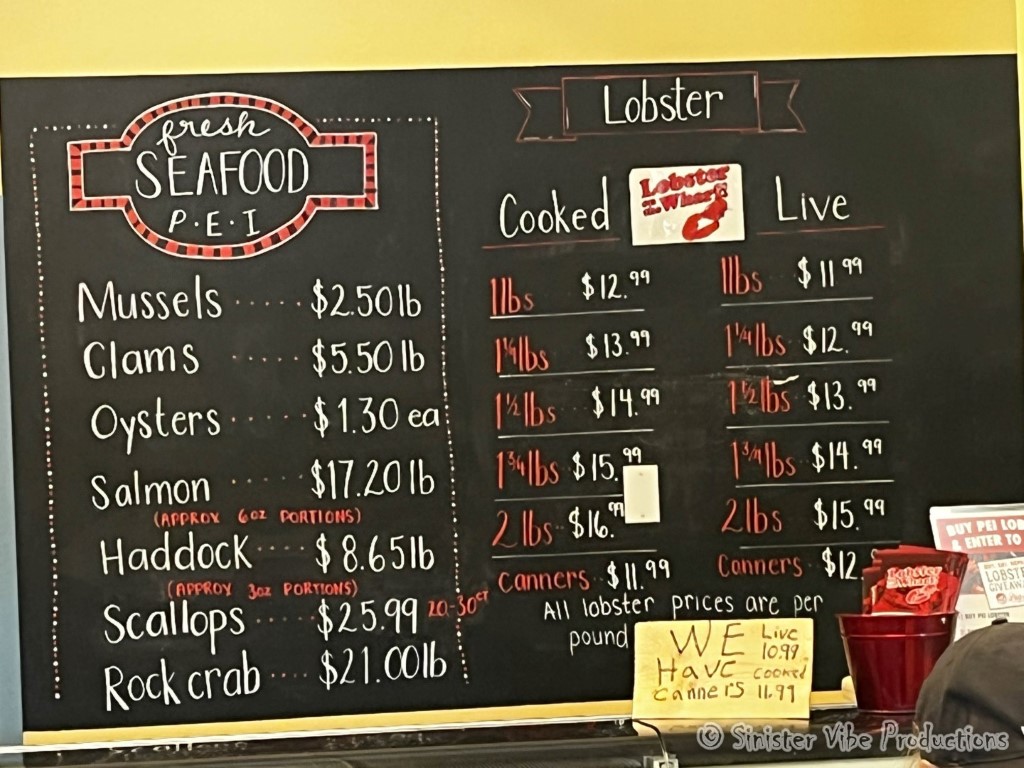 fresh
SEAFOOD
P·E·I
Mussels ····· $2.50 lb
Clams ····· $5.50 lb
Oysters ····· $1.30 ea
Salmon ····· $17.20 lb
(APPROX 6oz PORTIONS)
Haddock ···· $8.65 lb
(APPROX 3oz PORTIONS)
Scallops ···· $25.99 20-30ct
Rock crab ···· $21.00 lb
Lobster
Lobster
on the Wharf
Cooked
1lbs $12.99
1 1/4 lbs $13.99
1 1/2 lbs $14.99
1 3/4 lbs $15.99
2 lbs $16.99
canners $11.99
Live
1lbs $11.99
1 1/4 lbs $12.99
1 1/2 lbs $13.99
1 3/4 lbs $14.99
2lbs $15.99
canners $12
All lobster prices are per
pound
WE
Have
canners
Live
10.99
cooked
11.99
Lobster
BUY PEI LOB
& ENTER TO
LOBST
GIVEAW
© Sinister Vibe Productions